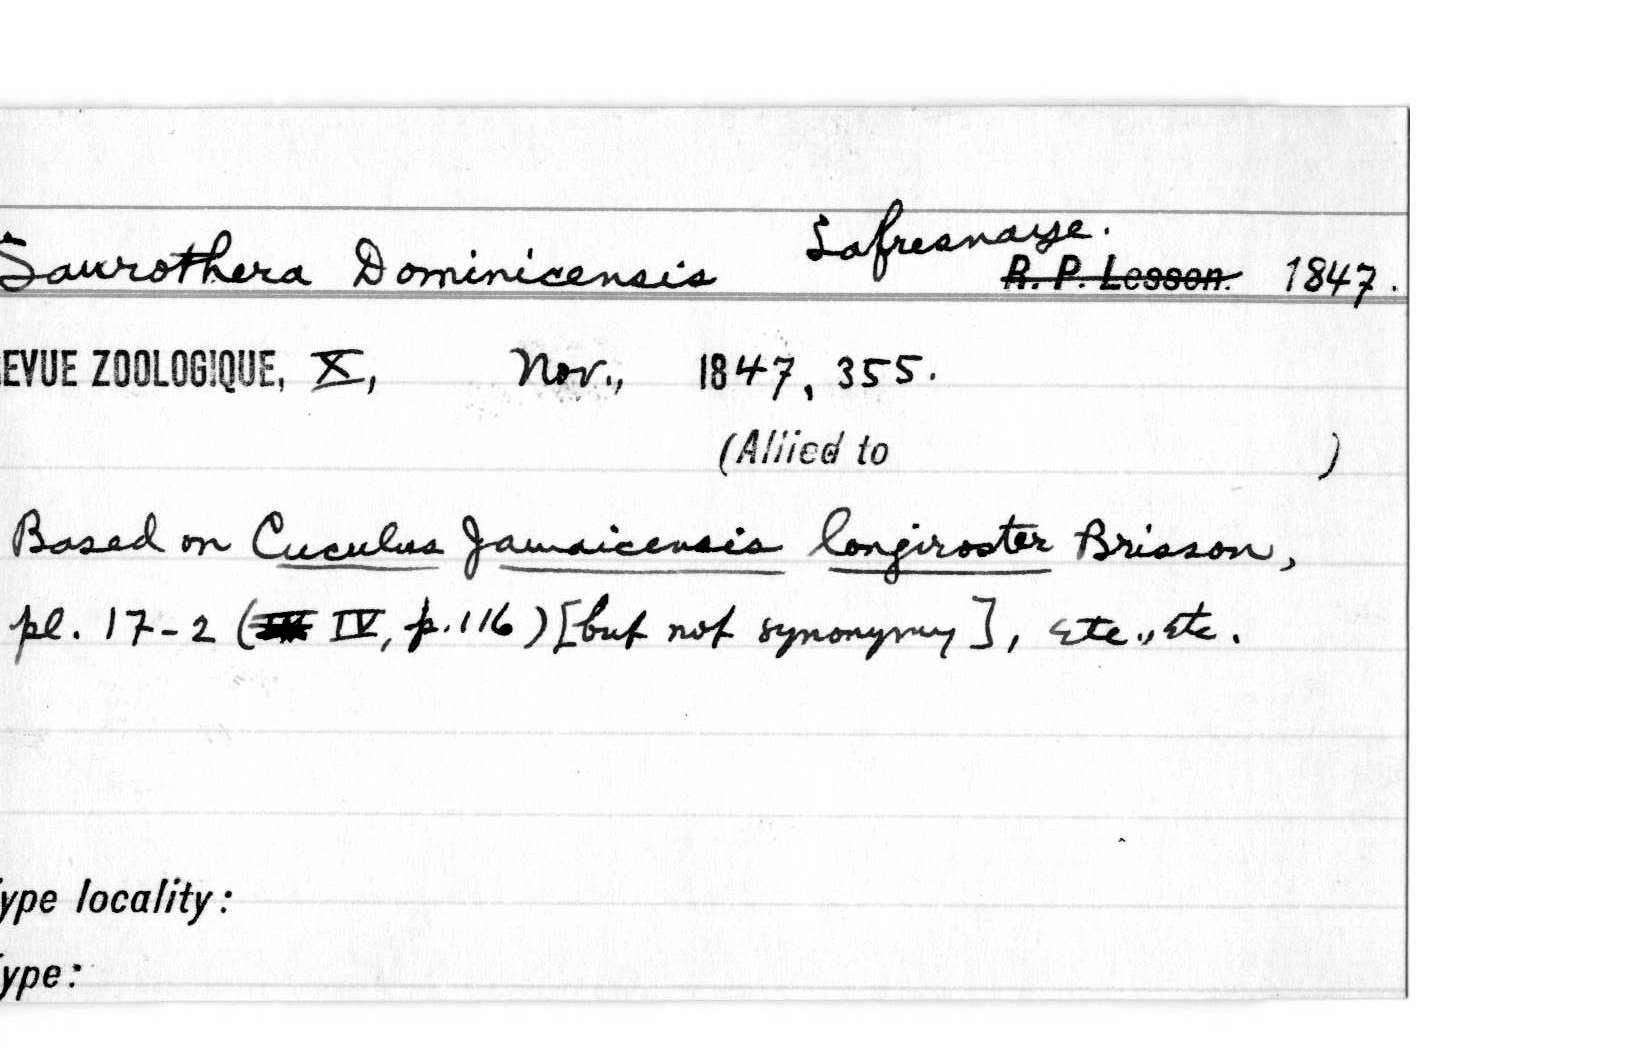 Saurothera Dominicensis Lafresnaye. R. P. Lesson. 1847.
EVUE ZOOLOGIQUE, X, Nov., 1847, 355.
(Allied to )
Based on Cuculus Jamaicensis longiroster Brisson,
pl. 17-2 ( IV, p. 116) [but not synonymy], etc., etc.
ype locality:
ype: